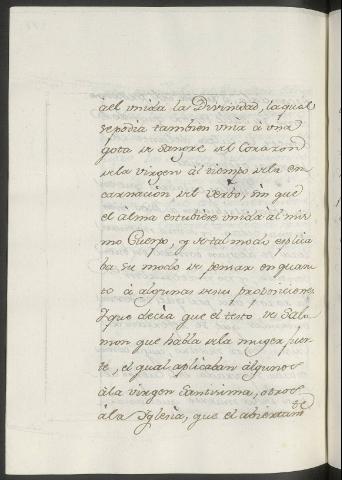 àel unida la Divinidad, la qual
se podia tambien unir à una
gota de sangre del Corazon
de la Virgen al tiempo de la en
carnacion del Verbo, sin que
el alma estubiese unida al mis
mo Cuerpo, y de tal modo esplica
ba su modo de pensar en quan
to à algunas de sus proposiciones
Y que decia que el testo de Salo
mon que habla de la muger fuer
te, el qual aplicaban algunos
à la virgen Santisima, otros
à la Iglesia, que el abiertam
te